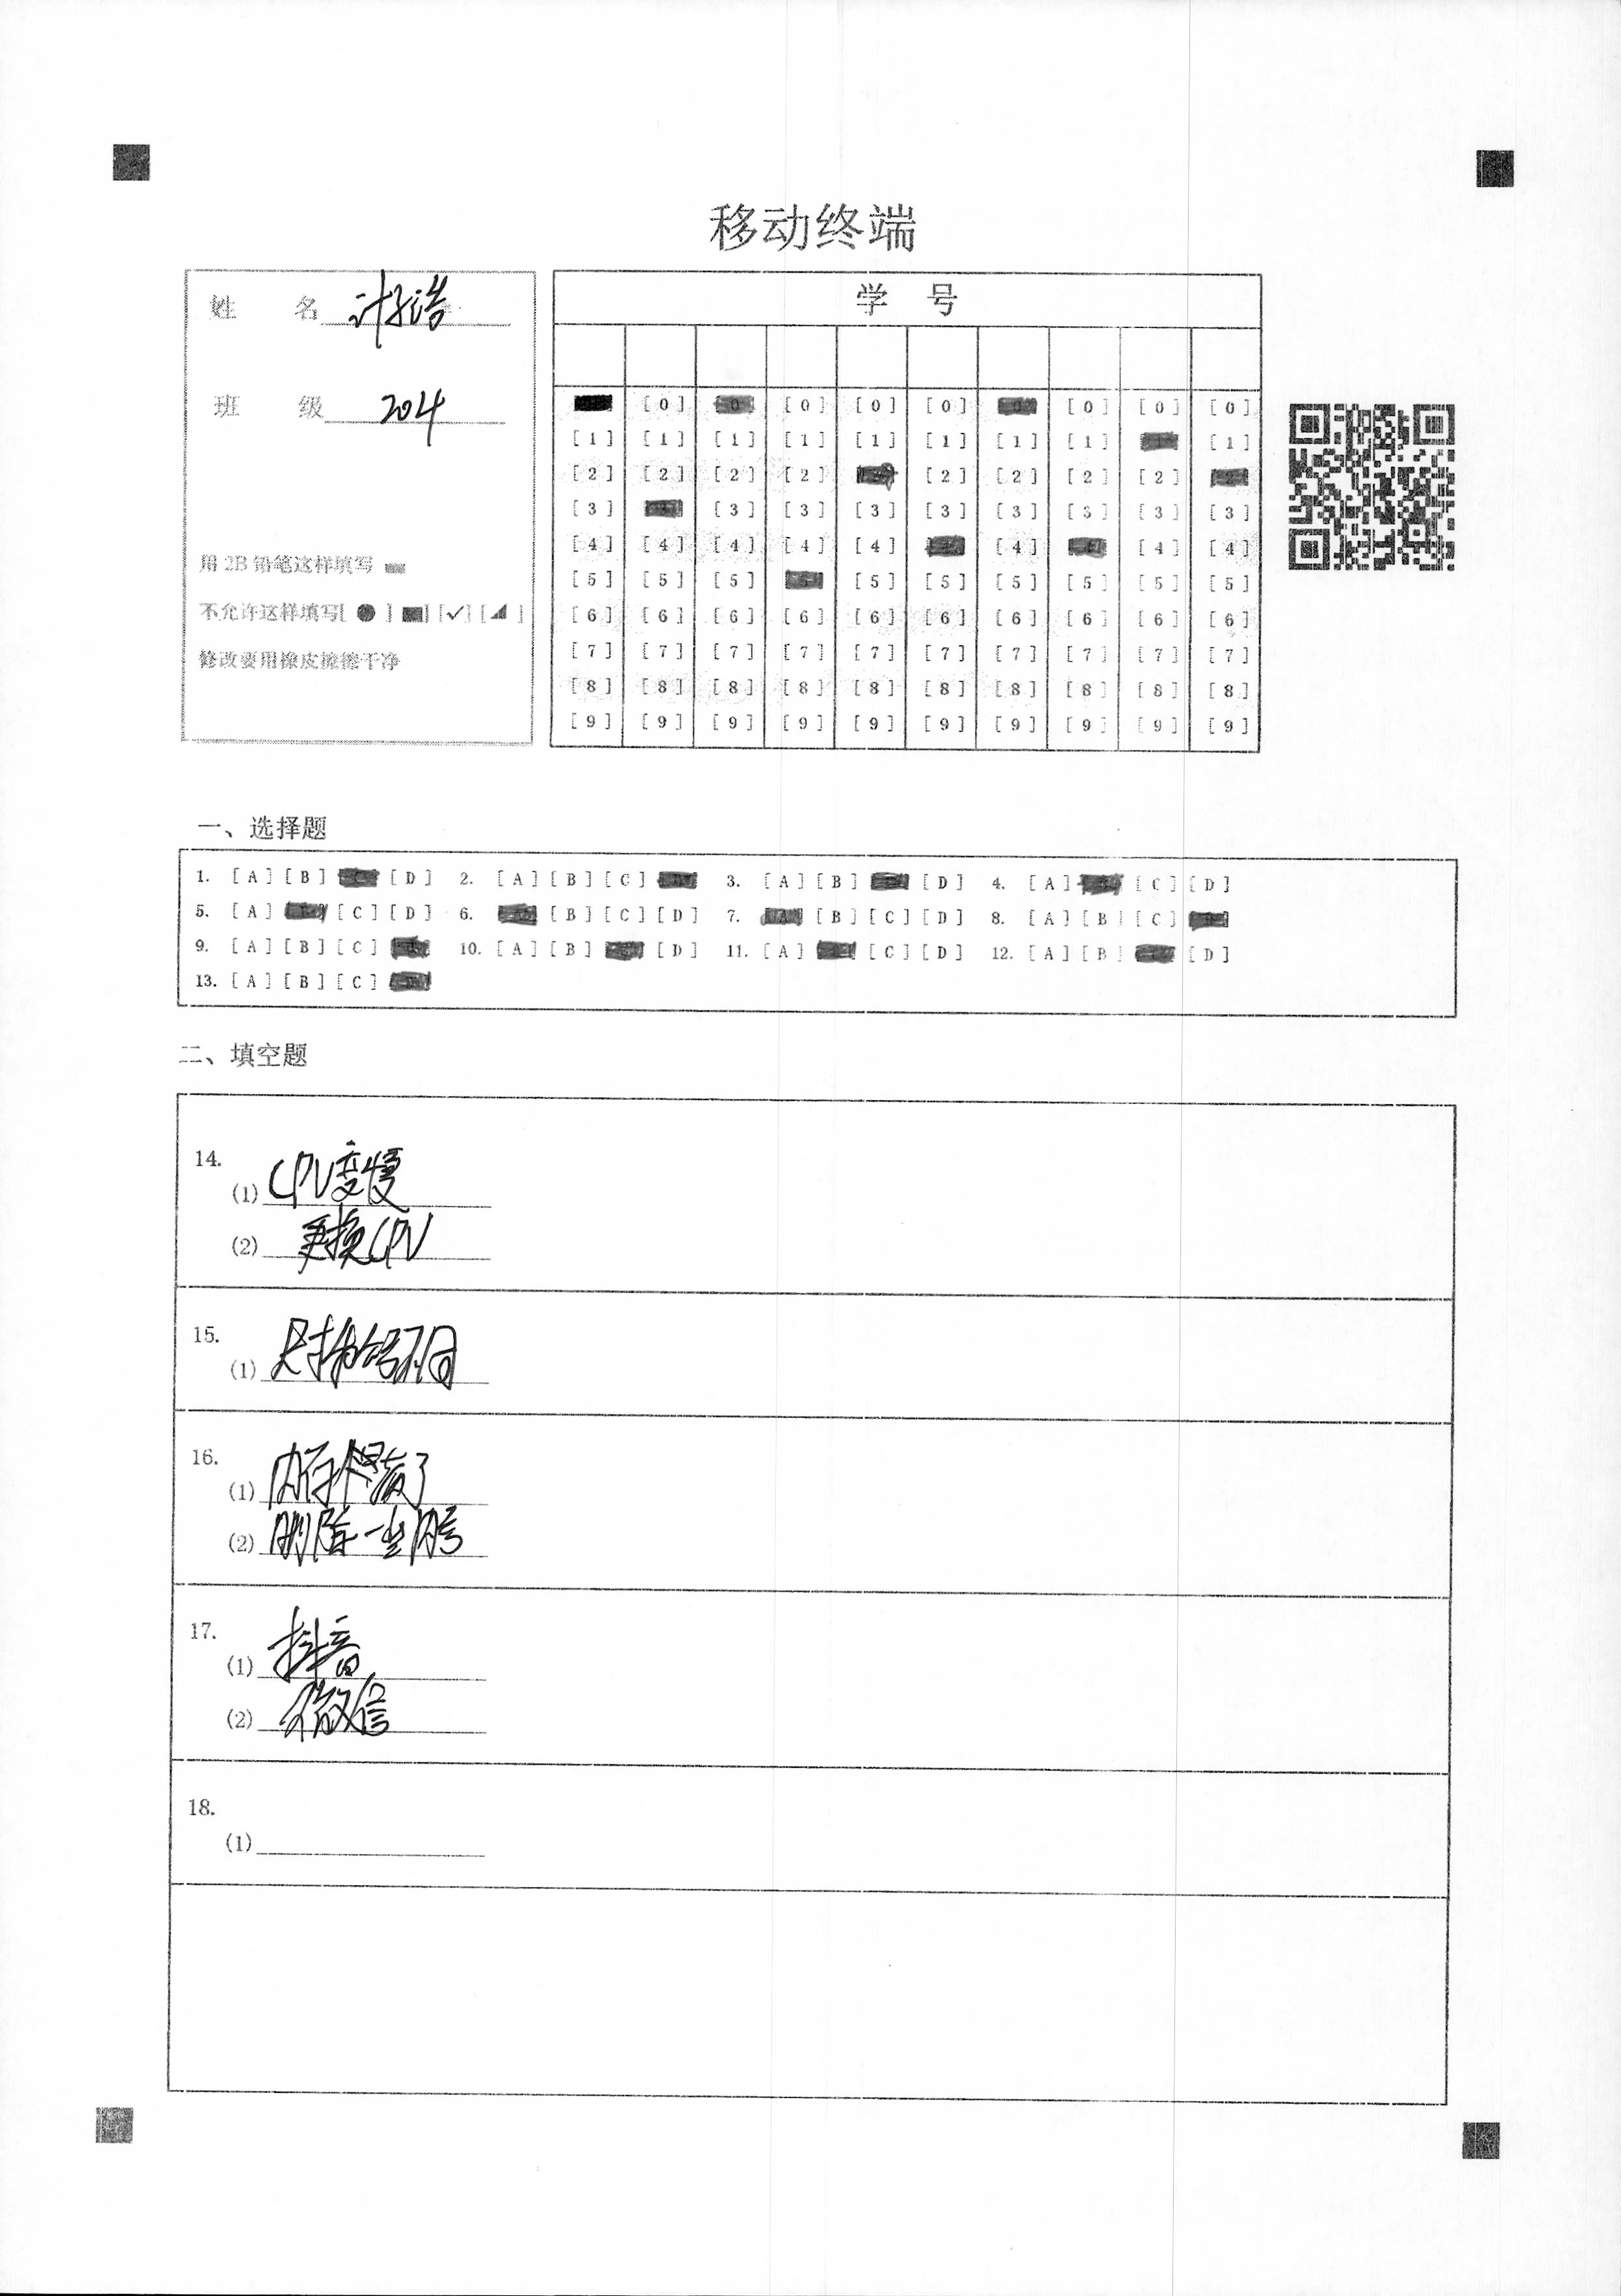 移动终端
姓 名 计子浩
班 级 204
用 2B 铅笔这样填写
不允许这样填写[ ● ] [■] [✓] [◢ ]
修改要用橡皮擦擦干净
学 号
[0] [0] [0] [0] [0] [0] [0] [0]
[1] [1] [1] [1] [1] [1] [1] [1] [1] [1]
[2] [2] [2] [2] [2] [2] [2] [2] [2]
[3] [3] [3] [3] [3] [3] [3] [3] [3]
[4] [4] [4] [4] [4] [4] [4] [4]
[5] [5] [5] [5] [5] [5] [5] [5] [5]
[6] [6] [6] [6] [6] [6] [6] [6] [6] [6]
[7] [7] [7] [7] [7] [7] [7] [7] [7] [7]
[8] [8] [8] [8] [8] [8] [8] [8] [8] [8]
[9] [9] [9] [9] [9] [9] [9] [9] [9] [9]
一、选择题
1. [A] [B] [D] 2. [A] [B] [C] 3. [A] [B] [D] 4. [A] [C] [D]
5. [A] [C] [D] 6. [B] [C] [D] 7. [A] [B] [C] [D] 8. [A] [B] [C]
9. [A] [B] [C] 10. [A] [B] [D] 11. [A] [C] [D] 12. [A] [B] [D]
13. [A] [B] [C]
二、填空题
14.
(1) CPU变慢
(2) 更换CPU
15.
(1)
16.
(1) 内存
(2) 删除一些内存
17.
(1) 抖音
(2) 微信
18.
(1)